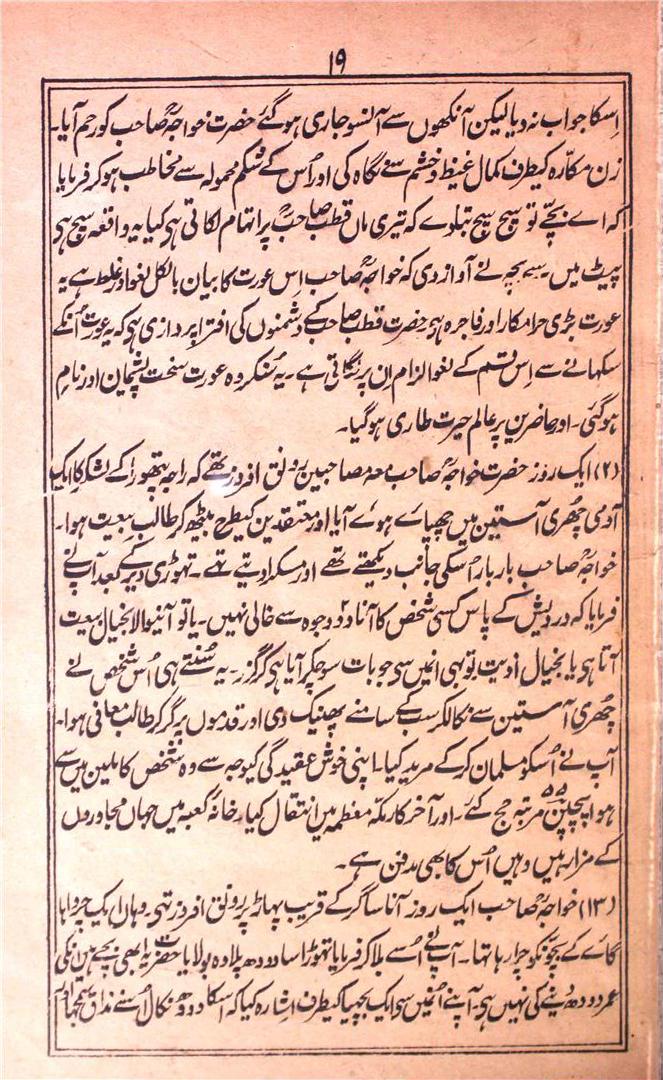 ۱۹
اِسکا جواب نہ دیا لیکن آنکھوں سے آنسو جاری ہوگئے حضرت خواجہؒ صاحب کو رحم آیا۔
زن مکّارہ کیطرف کمال غیظ و خشم سے نگاہ کی اور اُس کے شکم محمولہ سے مخاطب ہو کر فرمایا
کہ اے بچّے تو سچ سچ بتادے کہ تیری ماں قطب صاحبؒ پر اتہام لگاتی ہی کیا یہ واقعہ سچ ہی
پیٹ میں سے بچہ نے آواز دی کہ خواجہؒ صاحب اِس عورت کا بیان بالکل لغو اور غلط ہے یہ
عورت بڑی حرامکار اور فاجرہ ہی حضرت قطب صاحب کے دشمنوں کی افترا پردازی ہی کہ یہ عورت اُنکے
سکھانے سے اِس قسم کے لغو الزام اِن پر لگاتی ہے۔ یہ سُنکر وہ عورت سخت پشیمان اور نادِم
ہوگئی۔ اور حاضرین پر عالمِ حیرت طاری ہو گیا۔
(۲) ایک روز حضرت خواجہؒ صاحب معہ مصاحبین رونق افروز تھے کہ راجہ پتھورا کے لشکر کا ایک
آدمی چھُری آستین میں چھپائے ہوئے آیا اور معتقدین کیطرح بیٹھ کر طالب بیعت ہوا۔
خواجہؒ صاحب بار بار اُسکی جانب دیکھتے تھے اور مسکرا دیتے تھے۔ تہوڑی دیر کے بعد آپ نے
فرمایا کہ درویش کے پاس کسی شخص کا آنا دو ۲ وجوہ سے خالی نہیں۔ یا تو آنیوالا بخیال بیعت
آتا ہی یا بخیال اذیت تو بھی انہیں سی جو بات سوچکر آیا ہی کر گزر۔ یہ سُنتے ہی اُس شخص نے
چھُری آستین سے نکالکر سب کے سامنے پھینک دی اور قدموں پر گر کر طالب معافی ہوا۔
آپ نے اُسکو مسلمان کر کے مرید کیا۔ اپنی خوش عقیدگی کیوجہ سے وہ شخص کاملین میں سے
ہوا پچپن ۵۵ مرتبہ حج کئے۔ اور آخر کار مکّہ معظمہ میں انتقال کیا۔ خانۂ کعبہ میں جہاں مجاوروں
کے مزار ہیں وہیں اُس کا بھی مدفن ہے۔
(۱۳) خواجہؒ صاحب ایک روز آنا ساگر کے قریب پہاڑ پر رونق افروز تھی۔ وہاں ایک چرواہا
گائے کے بچّونکو چرا رہا تھا۔ آپنے اُسے بلا کر فرمایا تہوڑا سا دودھ پلا وہ بولا یا حضرت یہ ابھی بچے ہیں انکی
عمر دودھ دینے کی نہیں ہی۔ آپنے اُنہیں سی ایک بچھیا کیطرف اشارہ کیا کہ اسکا دودھ نکال اُسنے مذاق سمجھا اور